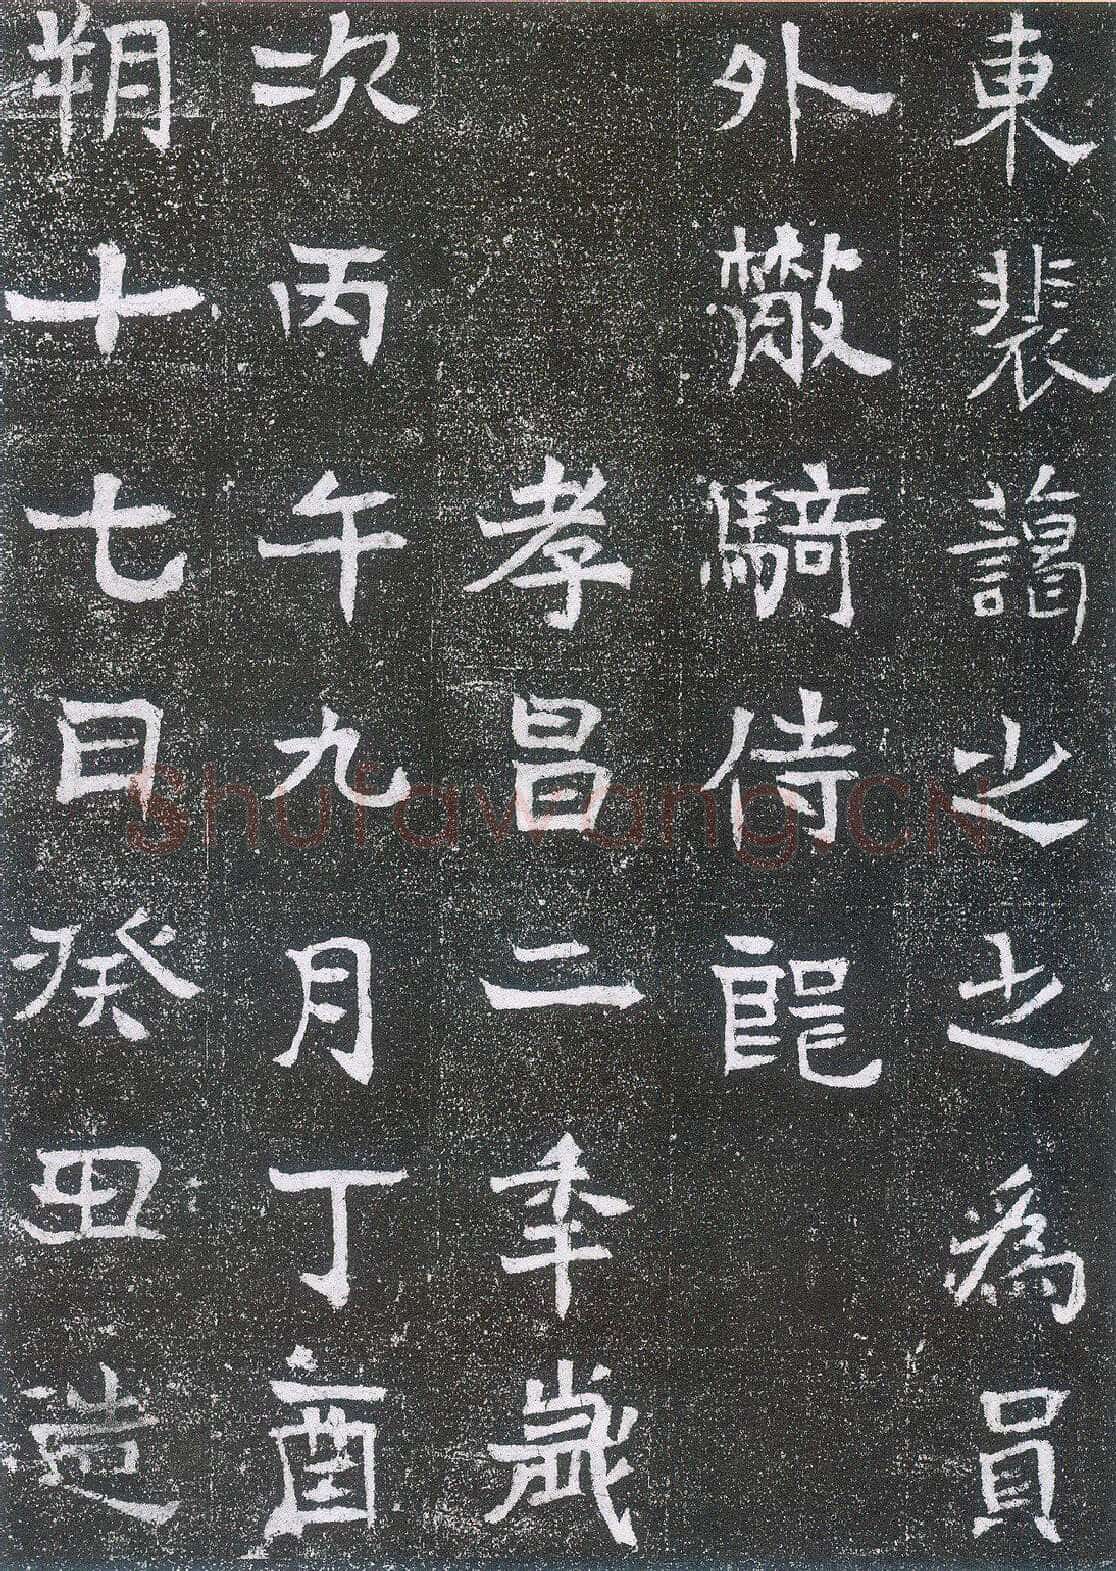 東裴譪之之為員
外散騎侍郎
孝昌二年歲
次丙午九月丁酉
朔十七日癸丑造
Shufawang.CN